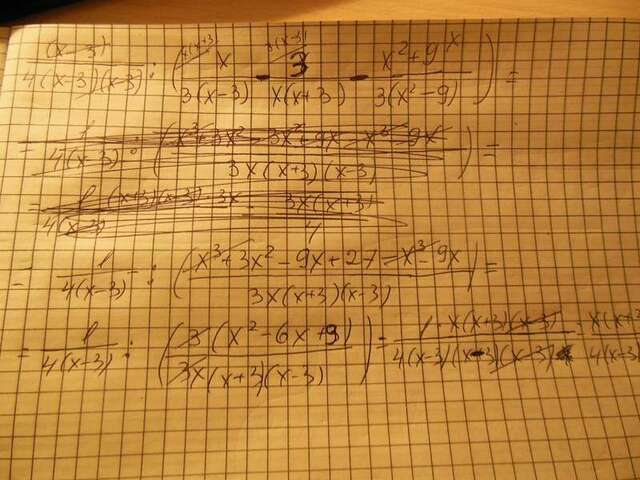 (x-3)/4(x-3)(x-3) : ( x/3(x-3) - 3/x(x+3) - x²+9/3(x²-9) ) =
= 1/4(x-3) : ( x³+3x²-3x²-9x-x³-9x/3x(x+3)(x-3) ) =
= 1/4(x-3)
= 1/4(x-3) : ( x³+3x²-9x+27-x³-9x/3x(x+3)(x-3) ) =
= 1/4(x-3) : ( 3(x²-6x+9)/3x(x+3)(x-3) ) = 1·x(x+3)(x-3)/4(x-3)(x-3)(x-3)